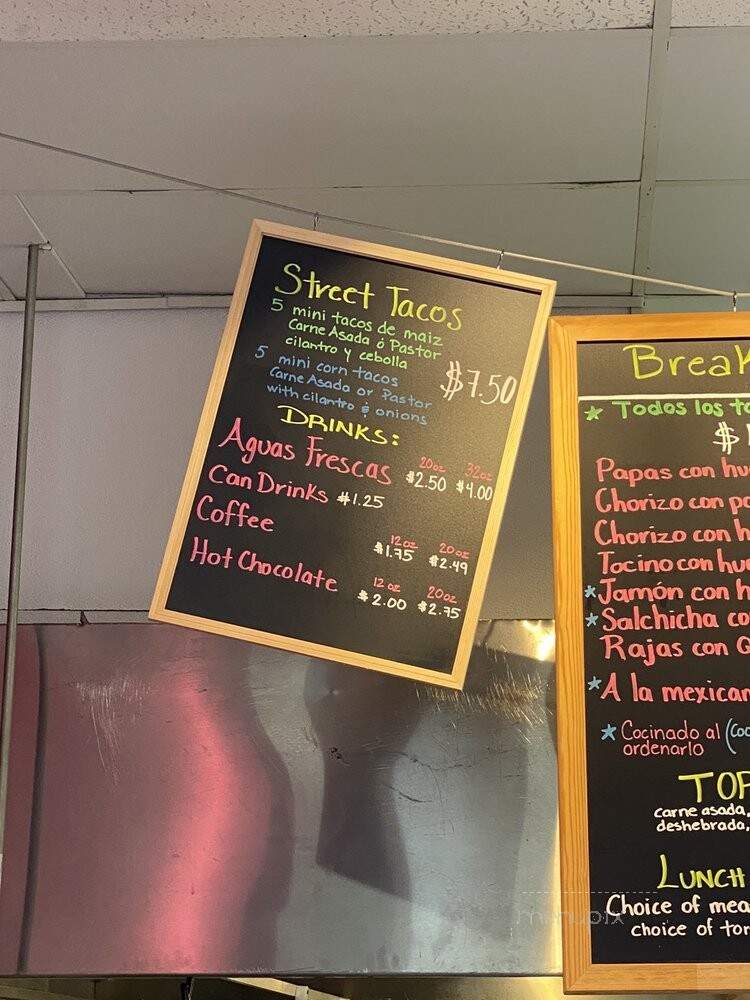 Street Tacos
5 mini tacos de maiz
Carne Asada ó Pastor
cilantro y cebolla
5 mini corn tacos
Carne Asada or Pastor
with cilantro & onions
$7.50
DRINKS:
Aguas Frescas
20oz 32oz
$2.50 $4.00
Can Drinks $1.25
Coffee
12oz 20oz
$1.75 $2.49
Hot Chocolate
12oz 20oz
$2.00 $2.75
Todos los
$
Papas con
Chorizo con
Chorizo con
Tocino con
*Jamón con
*Salchicha
Rajas con
*A la
*Cocinado al
ordenarlo
carne asada,
deshebrada,
LUNCH
Choice of
choice of